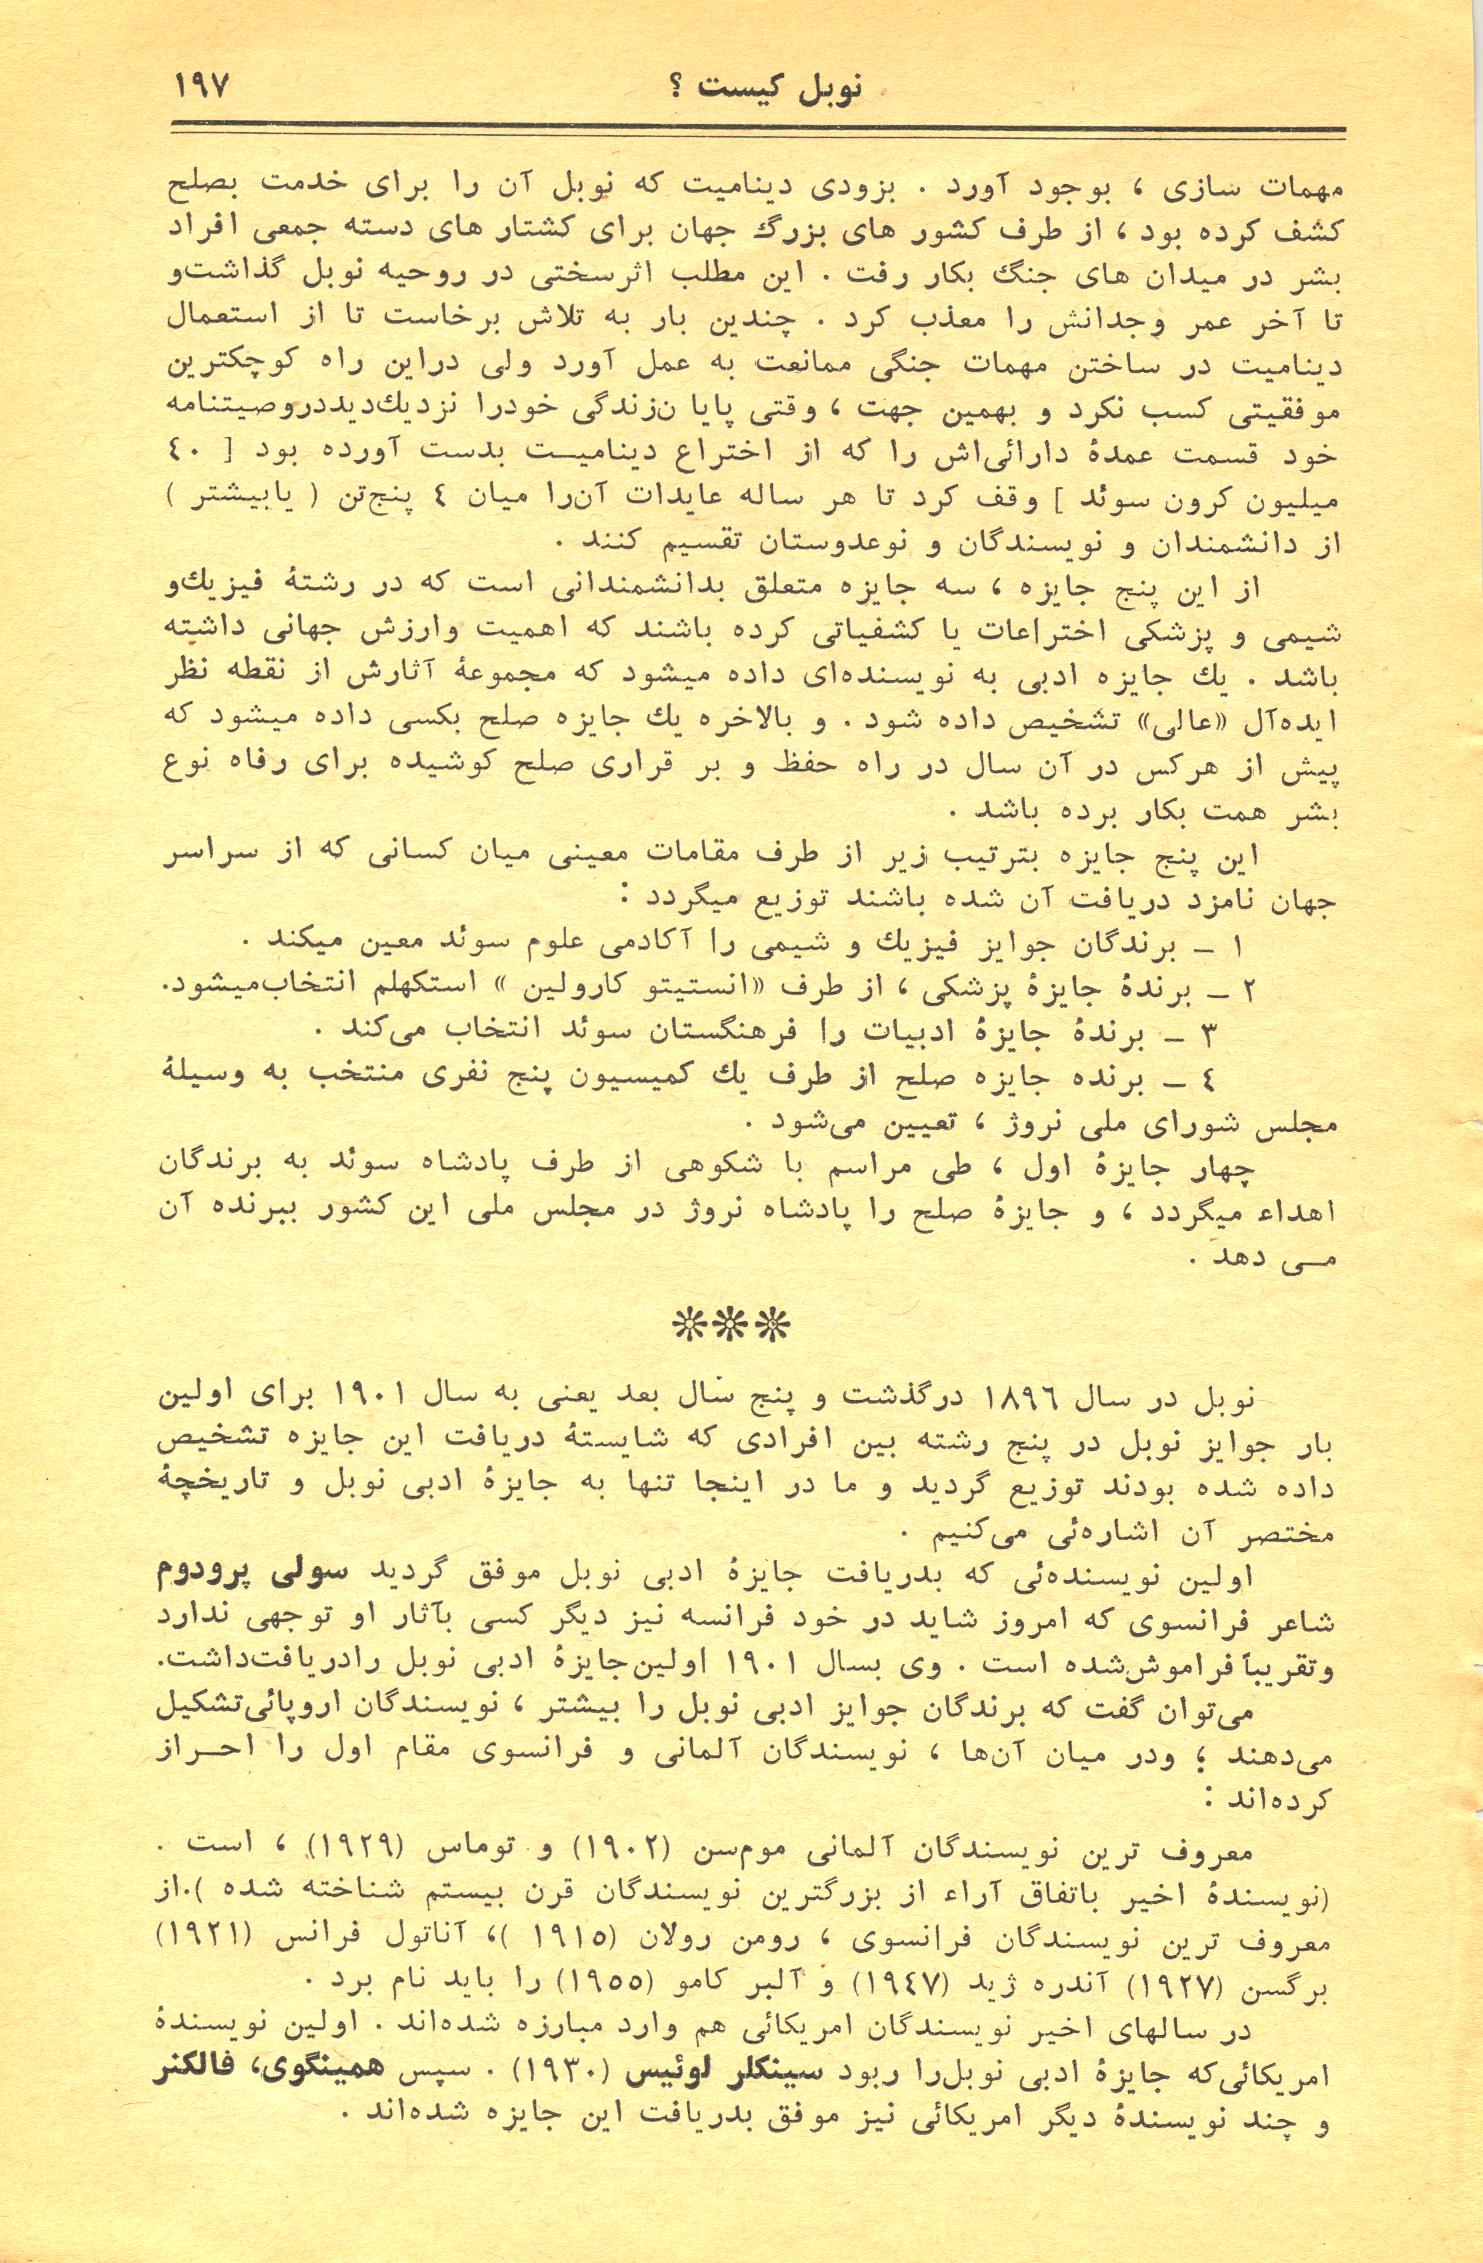 نوبل کیست ؟
١٩٧
مهمات سازی ، بوجود آورد . بزودی دینامیت که نوبل آن را برای خدمت بصلح
کشف کرده بود ، از طرف کشور های بزرگ جهان برای کشتار های دسته جمعی افراد
بشر در میدان های جنگ بکار رفت . این مطلب اثرسختی در روحیه نوبل گذاشت‌و
تا آخر عمر وجدانش را معذب کرد . چندین بار به تلاش برخاست تا از استعمال
دینامیت در ساختن مهمات جنگی ممانعت به عمل آورد ولی دراین راه کوچکترین
موفقیتی کسب نکرد و بهمین جهت ، وقتی پایا ن‌زندگی خودرا نزدیك‌دیددروصیتنامه
خود قسمت عمدهٔ دارائی‌اش را که از اختراع دینامیـت بدست آورده بود [ ٤٠
میلیون کرون سوئد ] وقف کرد تا هر ساله عایدات آن‌را میان ٤ پنج‌تن ( یابیشتر )
از دانشمندان و نویسندگان و نوعدوستان تقسیم کنند .
از این پنج جایزه ، سه جایزه متعلق بدانشمندانی است که در رشتهٔ فیزیك‌و
شیمی و پزشکی اختراعات یا کشفیاتی کرده باشند که اهمیت وارزش جهانی داشته
باشد . یك جایزه ادبی به نویسنده‌ای داده میشود که مجموعهٔ آثارش از نقطه نظر
ایده‌آل «عالی» تشخیص داده شود . و بالاخره یك جایزه صلح بکسی داده میشود که
پیش از هرکس در آن سال در راه حفظ و بر قراری صلح کوشیده برای رفاه نوع
بشر همت بکار برده باشد .
این پنج جایزه بترتیب زیر از طرف مقامات معینی میان کسانی که از سراسر
جهان نامزد دریافت آن شده باشند توزیع میگردد :
١ ـ برندگان جوایز فیزیك و شیمی را آکادمی علوم سوئد معین میکند .
٢ ـ برندهٔ جایزهٔ پزشکی ، از طرف «انستیتو کارولین » استکهلم انتخاب‌میشود.
٣ ـ برندهٔ جایزهٔ ادبیات را فرهنگستان سوئد انتخاب می‌کند .
٤ ـ برنده جایزه صلح از طرف یك کمیسیون پنج نفری منتخب به وسیلهٔ
مجلس شورای ملی نروژ ، تعیین می‌شود .
چهار جایزهٔ اول ، طی مراسم با شکوهی از طرف پادشاه سوئد به برندگان
اهداء میگردد ، و جایزهٔ صلح را پادشاه نروژ در مجلس ملی این کشور ببرنده آن
مـی دهد .
❊❊❊
نوبل در سال ١٨٩٦ درگذشت و پنج سال بعد یعنی به سال ١٩٠١ برای اولین
بار جوایز نوبل در پنج رشته بین افرادی که شایستهٔ دریافت این جایزه تشخیص
داده شده بودند توزیع گردید و ما در اینجا تنها به جایزهٔ ادبی نوبل و تاریخچهٔ
مختصر آن اشاره‌ئی می‌کنیم .
اولین نویسنده‌ئی که بدریافت جایزهٔ ادبی نوبل موفق گردید سولی پرودوم
شاعر فرانسوی که امروز شاید در خود فرانسه نیز دیگر کسی بآثار او توجهی ندارد
وتقریباً فراموش‌شده است . وی بسال ١٩٠١ اولین‌جایزهٔ ادبی نوبل رادریافت‌داشت.
می‌توان گفت که برندگان جوایز ادبی نوبل را بیشتر ، نویسندگان اروپائی‌تشکیل
می‌دهند ؛ ودر میان آن‌ها ، نویسندگان آلمانی و فرانسوی مقام اول را احـراز
کرده‌اند :
معروف ترین نویسندگان آلمانی موم‌سن (١٩٠٢) و توماس (١٩٢٩) ، است .
(نویسندهٔ اخیر باتفاق آراء از بزرگترین نویسندگان قرن بیستم شناخته شده ).از
معروف ترین نویسندگان فرانسوی ، رومن رولان (١٩١٥ )، آناتول فرانس (١٩٢١)
برگسن (١٩٢٧) آندره ژید (١٩٤٧) و آلبر کامو (١٩٥٥) را باید نام برد .
در سالهای اخیر نویسندگان امریکائی هم وارد مبارزه شده‌اند . اولین نویسندهٔ
امریکائی‌که جایزهٔ ادبی نوبل‌را ربود سینکلر لوئیس (١٩٣٠) . سپس همینگوی، فالکنر
و چند نویسندهٔ دیگر امریکائی نیز موفق بدریافت این جایزه شده‌اند .